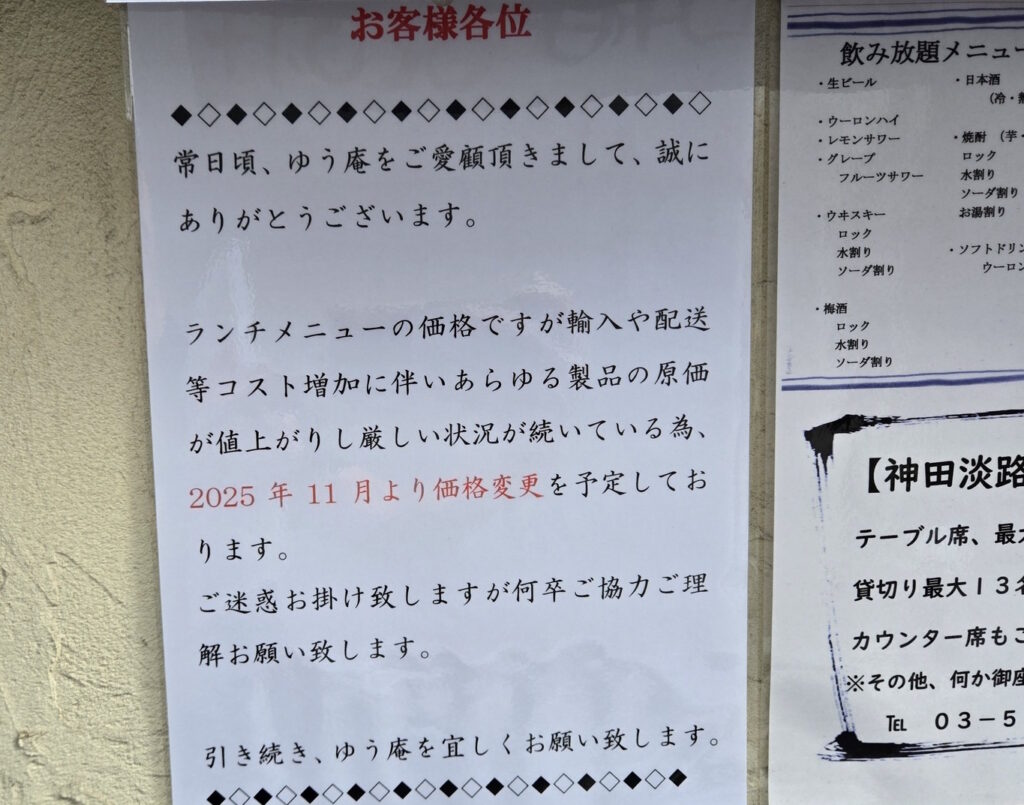 お客様各位
◆◇◆◇◆◇◆◇◆◇◆◇◆◇◆◇◆◇◆◇
常日頃、ゆう庵をご愛顧頂きまして、誠に
ありがとうございます。
ランチメニューの価格ですが輸入や配送
等コスト増加に伴いあらゆる製品の原価
が値上がりし厳しい状況が続いている為、
2025 年 11 月より価格変更を予定してお
ります。
ご迷惑お掛け致しますが何卒ご協力ご理
解お願い致します。
引き続き、ゆう庵を宜しくお願い致します。
◆◇◆◇◆◇◆◇◆◇◆◇◆◇◆◇◆◇◆
飲み放題メニュー
・生ビール
・ウーロンハイ
・レモンサワー
・グレープ
フルーツサワー
・ウヰスキー
ロック
水割り
ソーダ割り
・梅酒
ロック
水割り
ソーダ割り
・日本酒
(冷・
・焼酎 (芋・
ロック
水割り
ソーダ割り
お湯割り
・ソフトドリン
ウーロン
【神田淡路
テーブル席、最
貸切り最大13名
カウンター席もご
※その他、何か御座
℡ 03-5